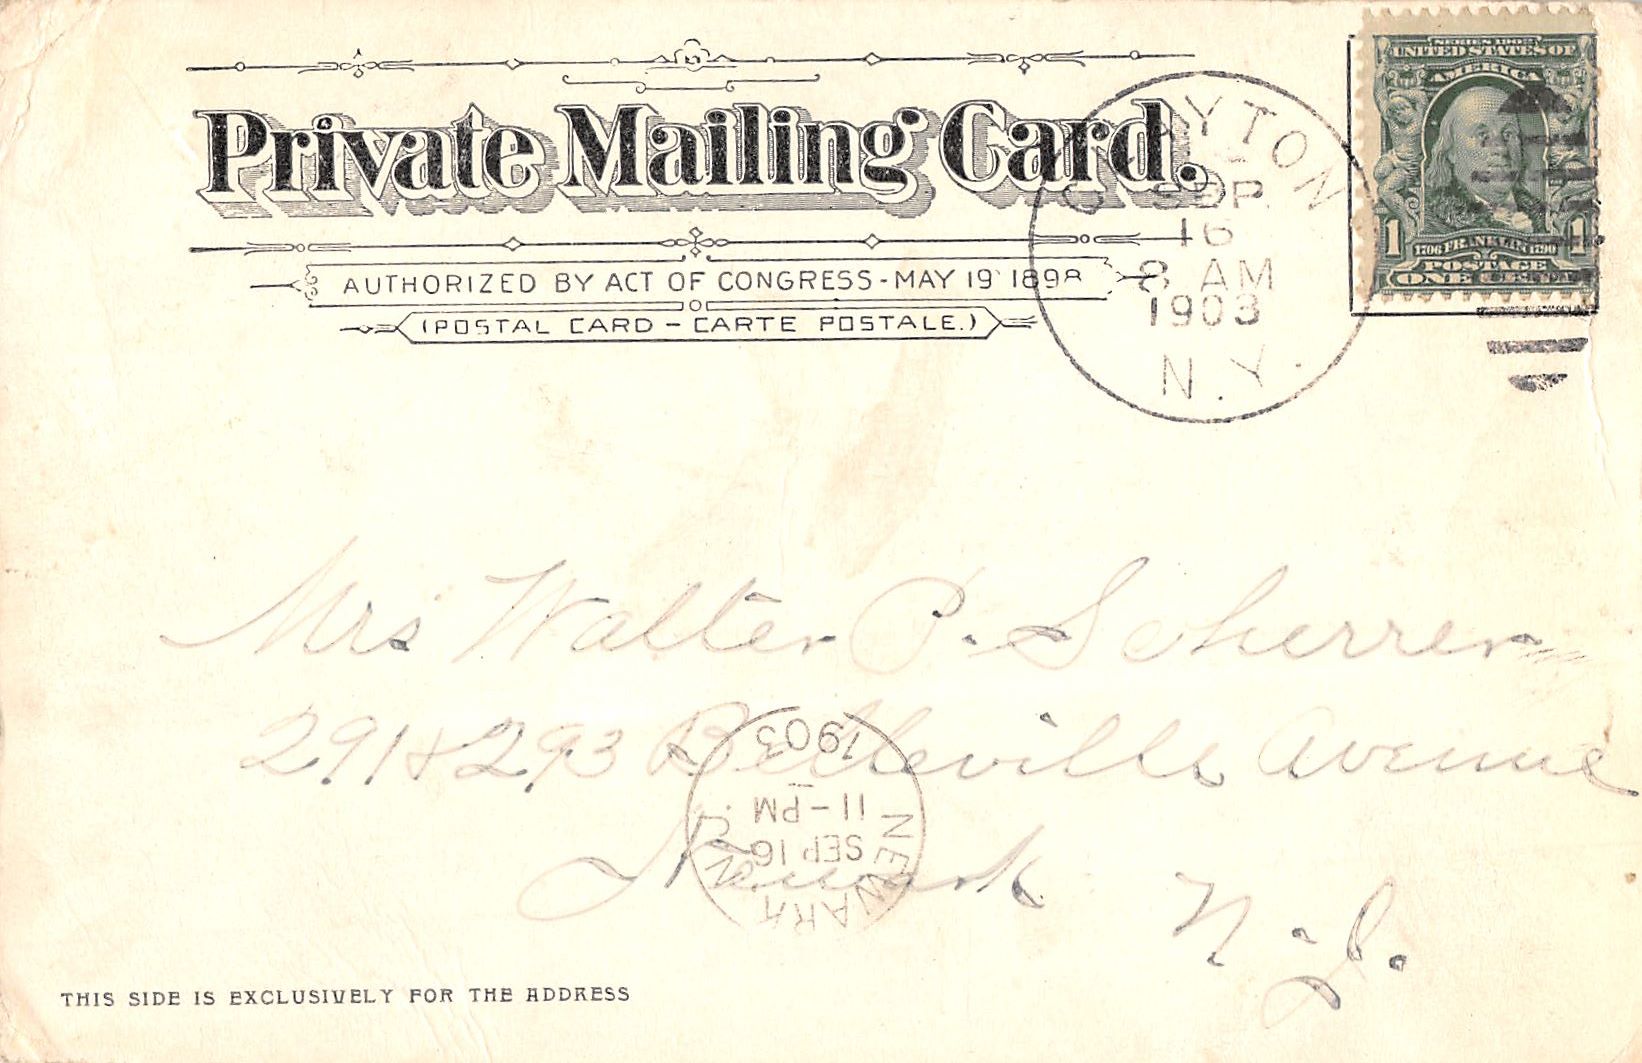 Private Mailing Card.
AUTHORIZED BY ACT OF CONGRESS-MAY 19 1898
(POSTAL CARD - CARTE POSTALE.)
CLAYTON
SEP.
16
8 AM
1903
N.Y.
SERIES 1902
UNITED STATES OF
AMERICA
1 1
1706 FRANKLIN 1790
POSTAGE
ONE CENT
Mrs Walter P. Scherrer
291 & 293 Belleville Avenue
Newark N.J.
NEWARK N.J.
SEP 16
11-PM
1903
THIS SIDE IS EXCLUSIVELY FOR THE ADDRESS